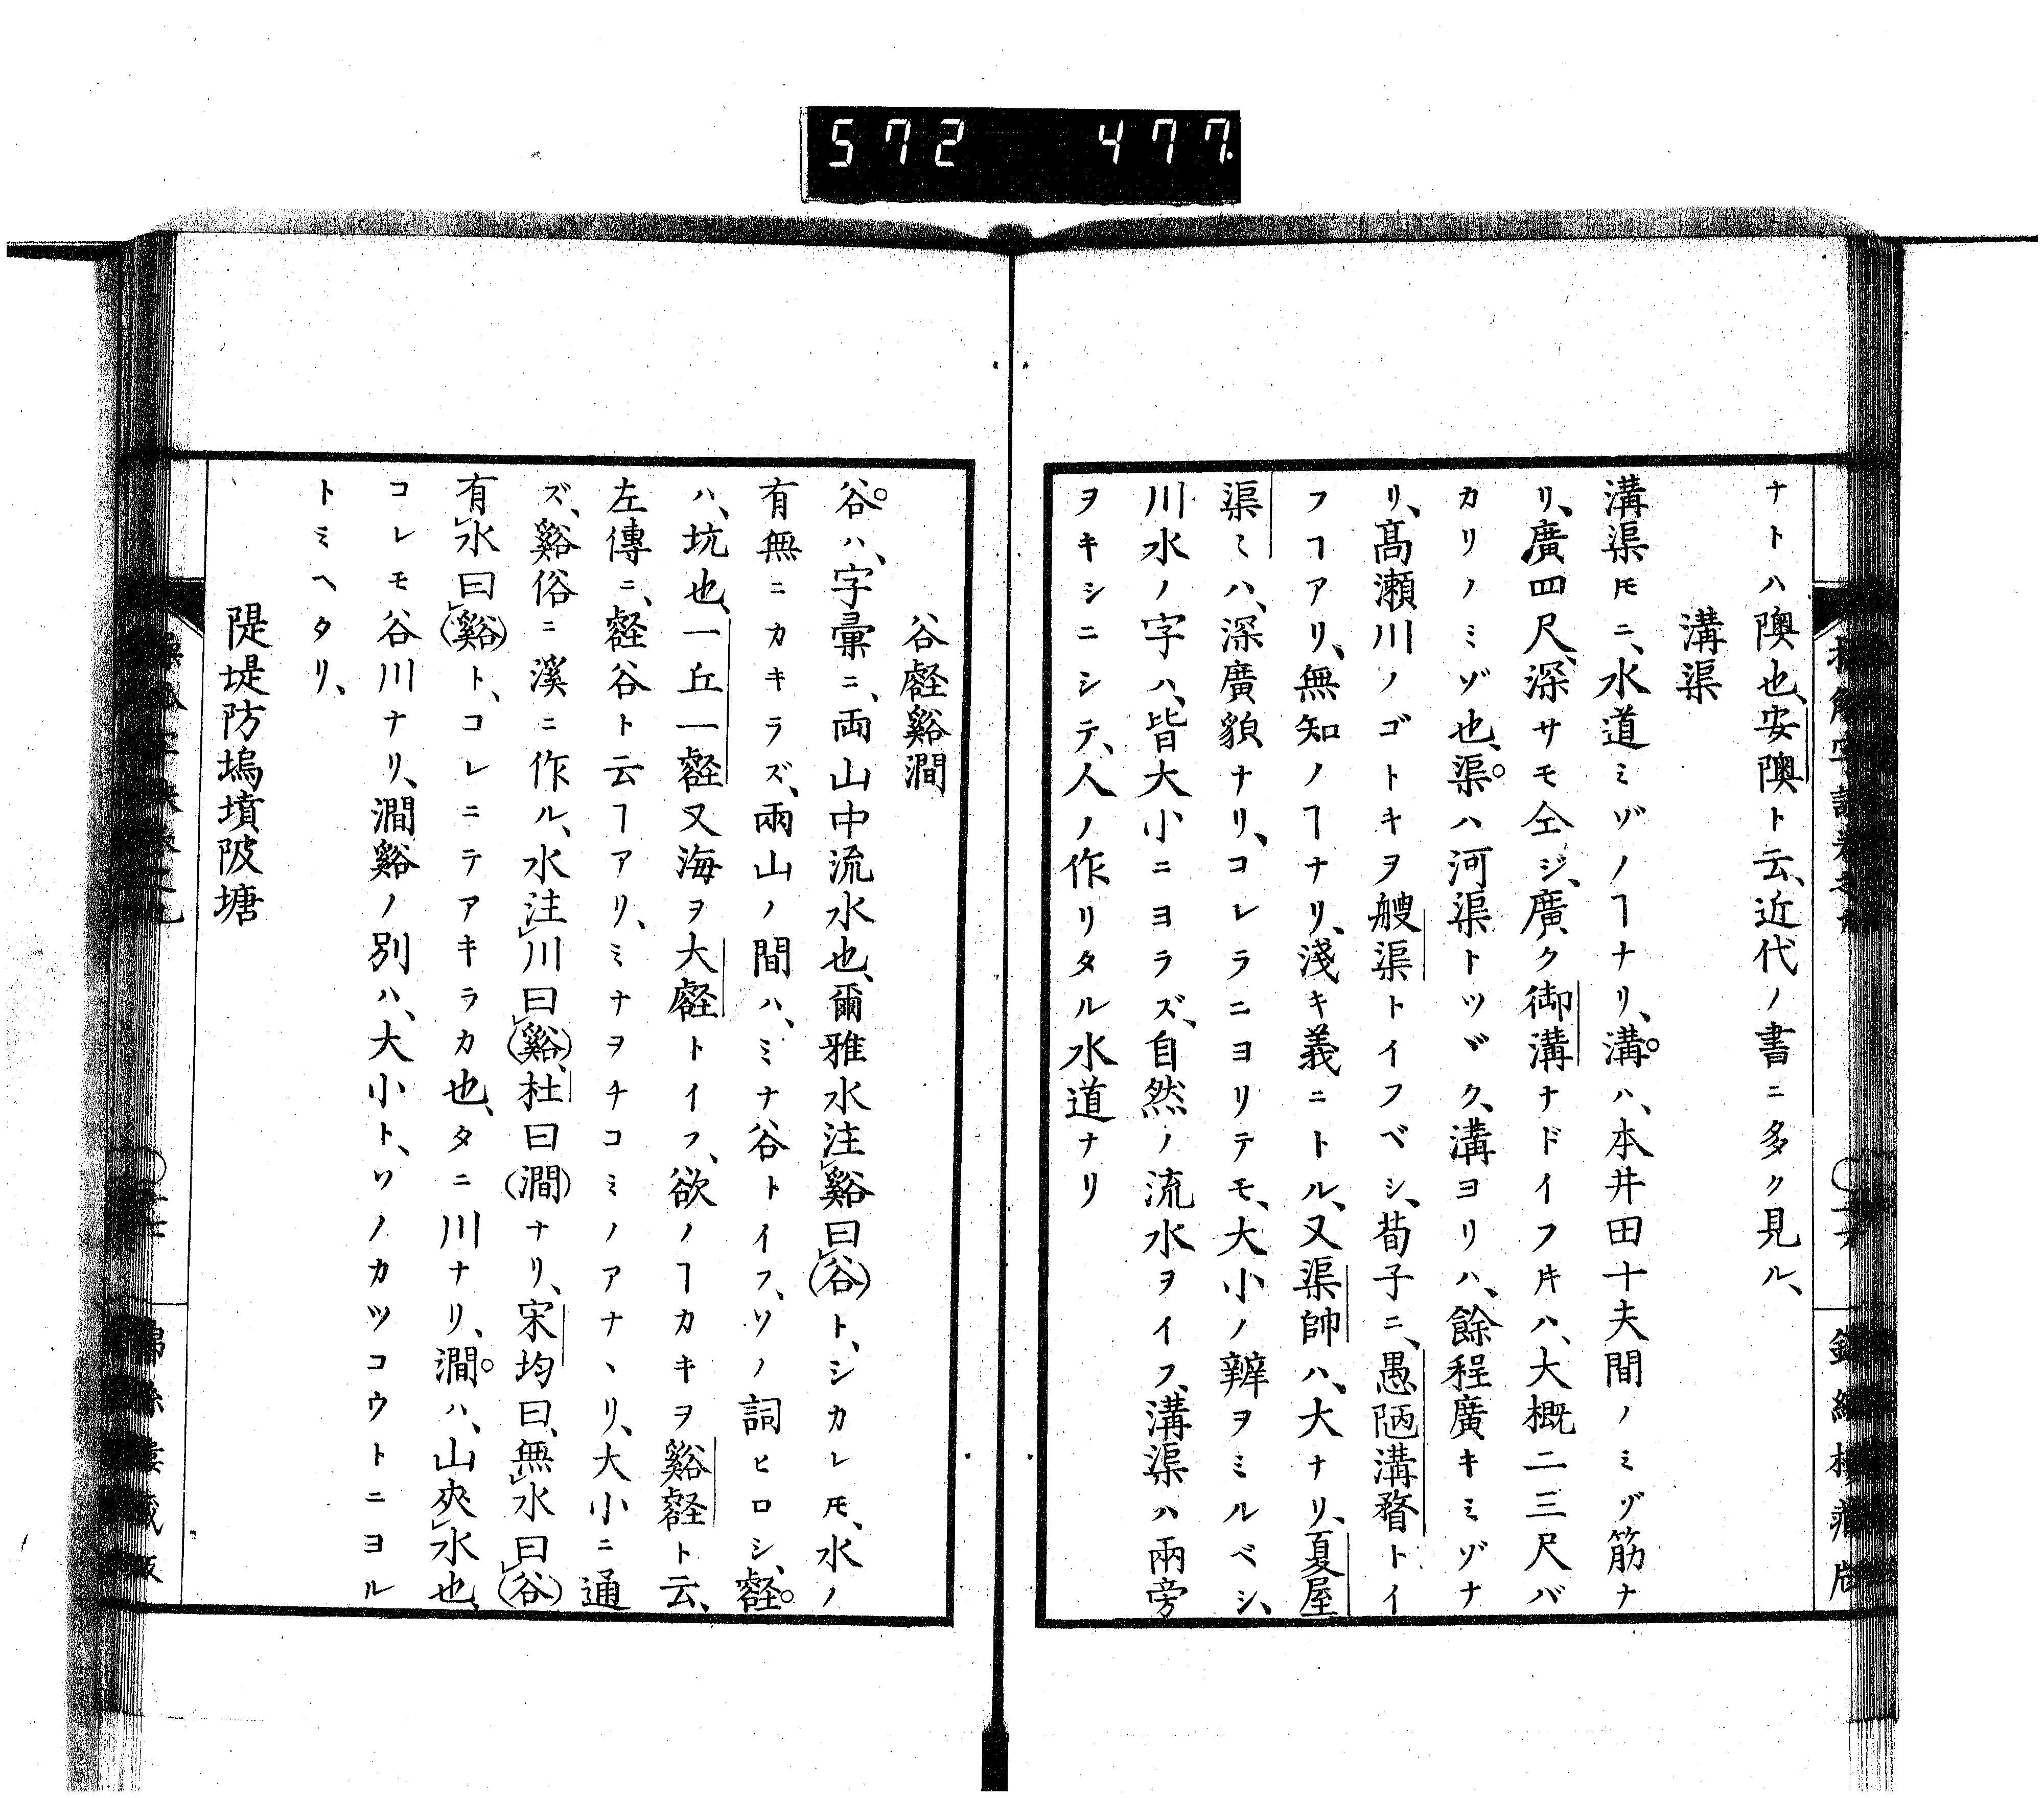 572 477
ナトハ隩也、安隩ト云、近代ノ書ニ多ク見ル、
溝渠
溝渠𪜈ニ、水道ミゾノヿナリ、溝ハ、本井田十夫間ノミゾ筋ナ
リ、廣四尺、深サモ仝ジ、廣ク御溝ナドイフ𪜈ハ、大概二三尺バ
カリノミゾ也、渠ハ河渠トツヾク、溝ヨリハ、餘程廣キミゾナ
リ、髙瀬川ノゴトキヲ艘渠トイフベシ、荀子ニ、愚陋溝瞀トイ
フヿアリ、無知ノヿナリ、淺キ義ニトル、又渠帥ハ、大ナリ、夏屋
渠〻ハ、深廣貌ナリ、コレラニヨリテモ、大小ノ辨ヲミルベシ、
川水ノ字ハ、皆大小ニヨラズ、自然ノ流水ヲイフ、溝渠ハ兩旁
ヲキシニシテ、人ノ作リタル水道ナリ
谷壑谿澗
谷ハ、字彙ニ、両山中流水也、爾雅水注谿曰(谷)ト、シカレ𪜈、水ノ
有無ニカキラズ、兩山ノ間ハ、ミナ谷トイフ、ソノ詞ヒロシ、壑
ハ、坑也、一丘一壑又海ヲ大壑トイフ、欲ノヿカキヲ谿壑ト云、
左傳ニ、壑谷ト云ヿアリ、ミナヲチコミノアナヽリ、大小ニ通
ズ、谿俗ニ溪ニ作ル、水注川曰(谿)、杜曰(澗)ナリ、宋均曰、無水曰(谷)
有水曰(谿)ト、コレニテアキラカ也、タニ川ナリ、澗ハ、山夾水也、
コレモ谷川ナリ、澗谿ノ別ハ、大小ト、ソノカツコウトニヨル
トミヘタリ、
隄堤防塢墳陂塘